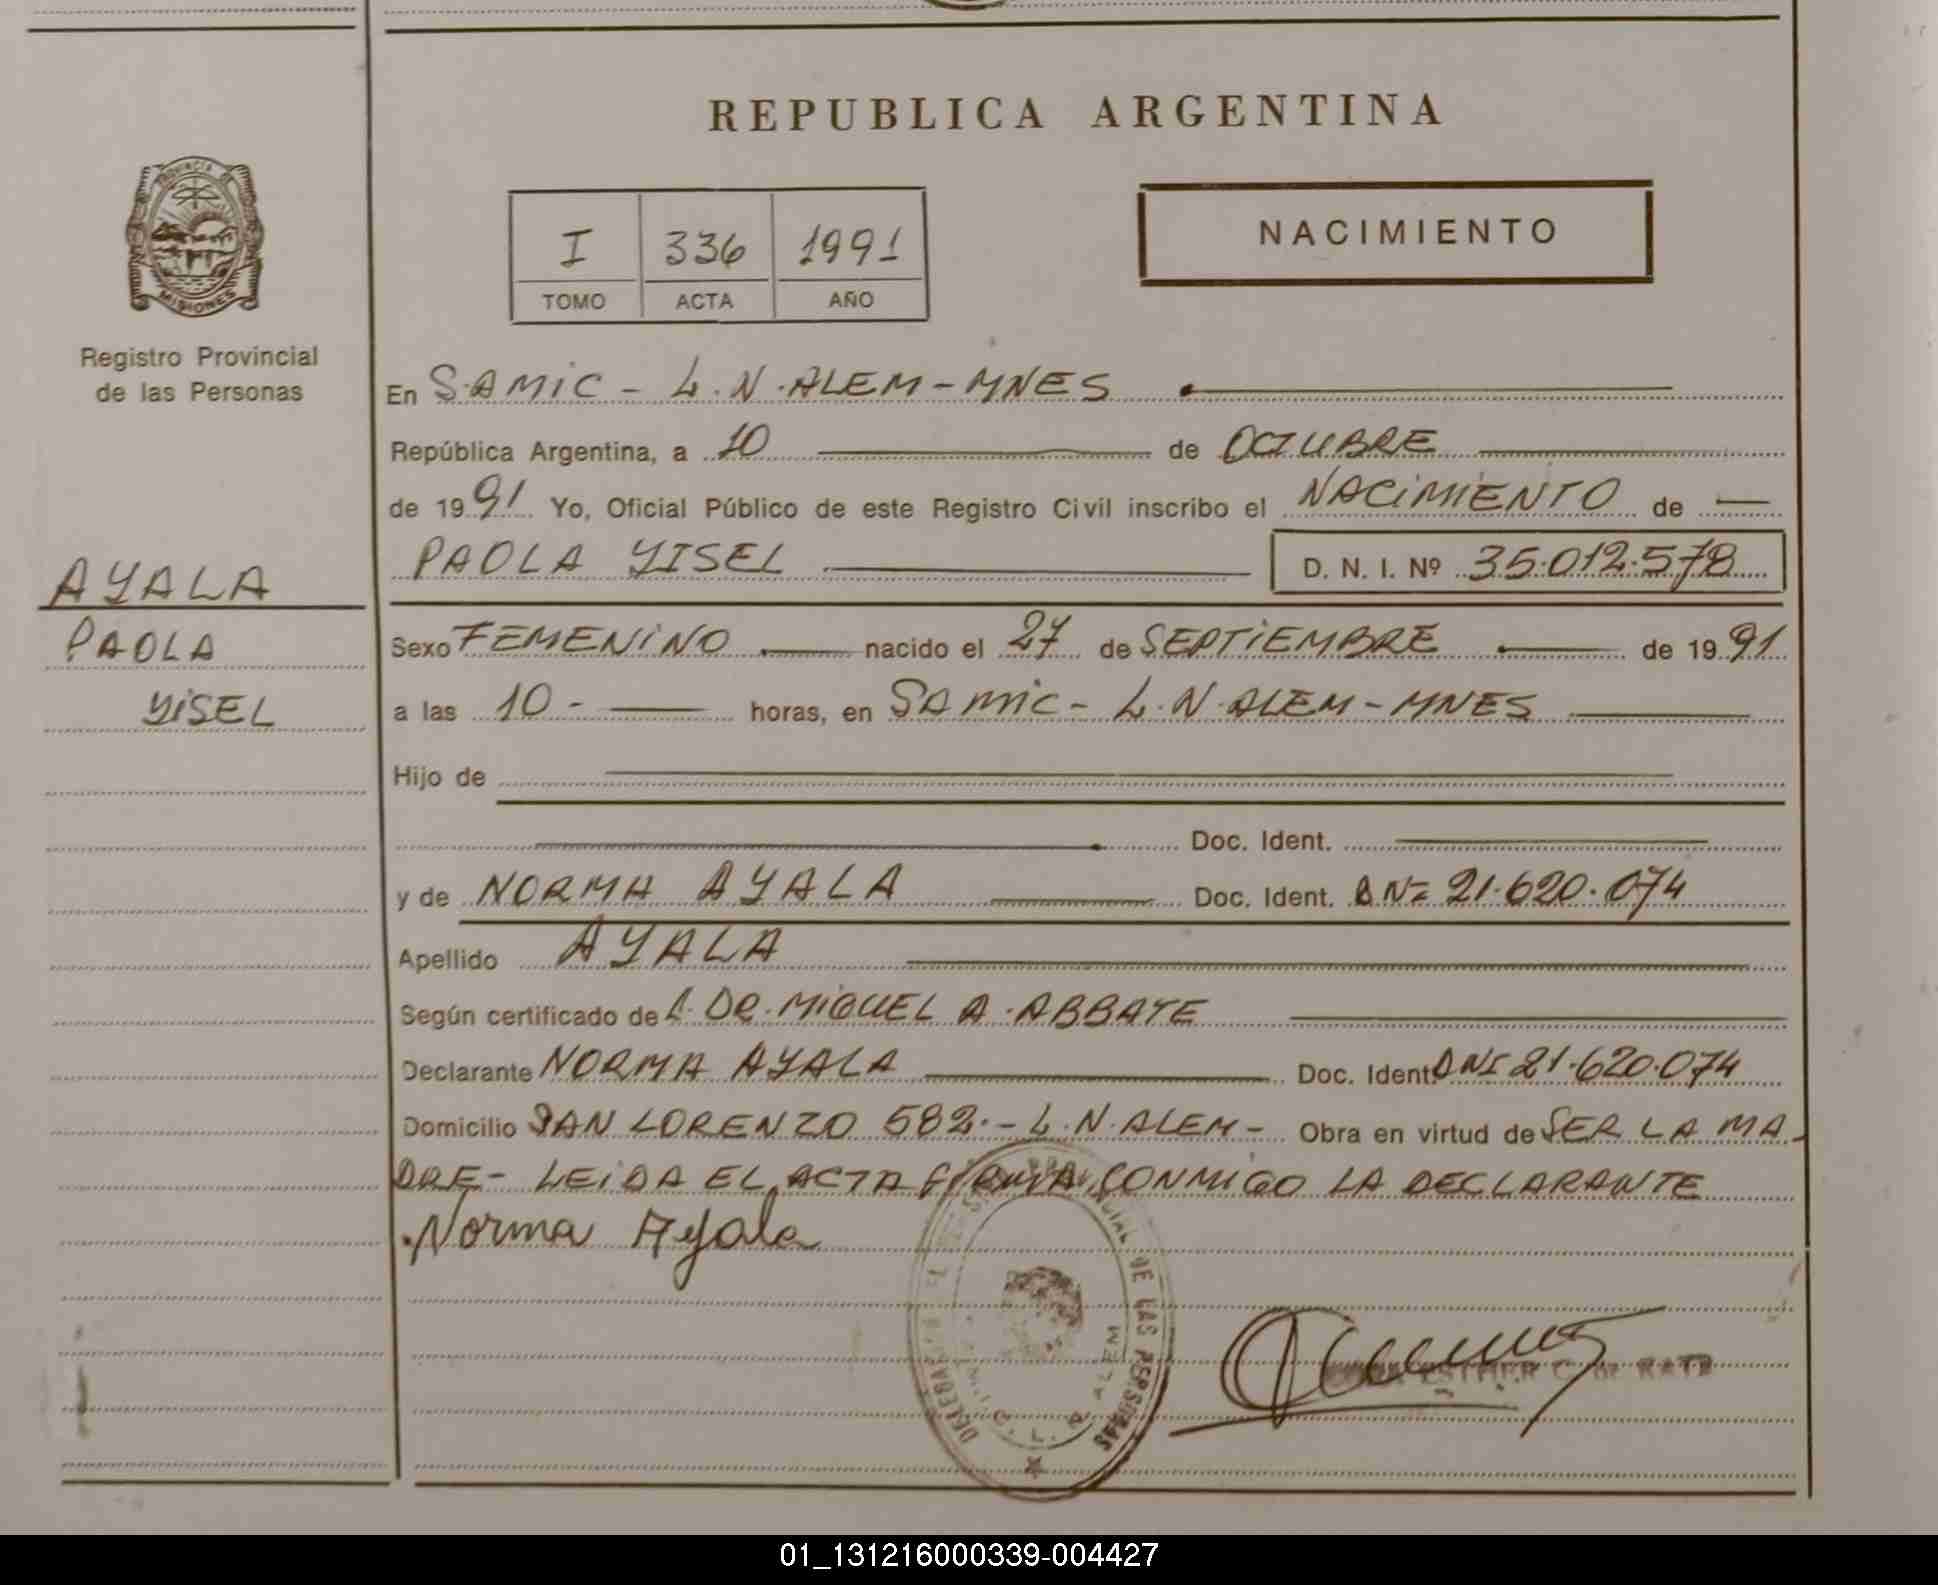 REPUBLICA ARGENTINA
PROVINCIA DE
MISIONES
Registro Provincial
de las Personas
I 336 1991
TOMO ACTA AÑO
NACIMIENTO
En SAMIC - L.N. ALEM - MNES
República Argentina, a 10 de OCTUBRE
de 1991. Yo, Oficial Público de este Registro Civil inscribo el NACIMIENTO de
PAOLA YISEL D. N. I. Nº 35.012.578
AYALA
PAOLA
YISEL
Sexo FEMENINO nacido el 27 de SEPTIEMBRE de 1991
a las 10 - horas, en SAMIC - L.N. ALEM - MNES
Hijo de
Doc. Ident.
y de NORMA AYALA Doc. Ident. 21.620.074
Apellido AYALA
Según certificado de DR. MIGUEL A. ABBATE
Declarante NORMA AYALA Doc. Ident. DNI 21.620.074
Domicilio SAN LORENZO 582. - L.N. ALEM - Obra en virtud de SER LA MA-
DRE - LEIDA EL ACTA FIRMA CONMIGO LA DECLARANTE
Norma Ayala
DE LAS PERSONAS
ALEM
ESTHER C. DE RATZ
01_131216000339-004427